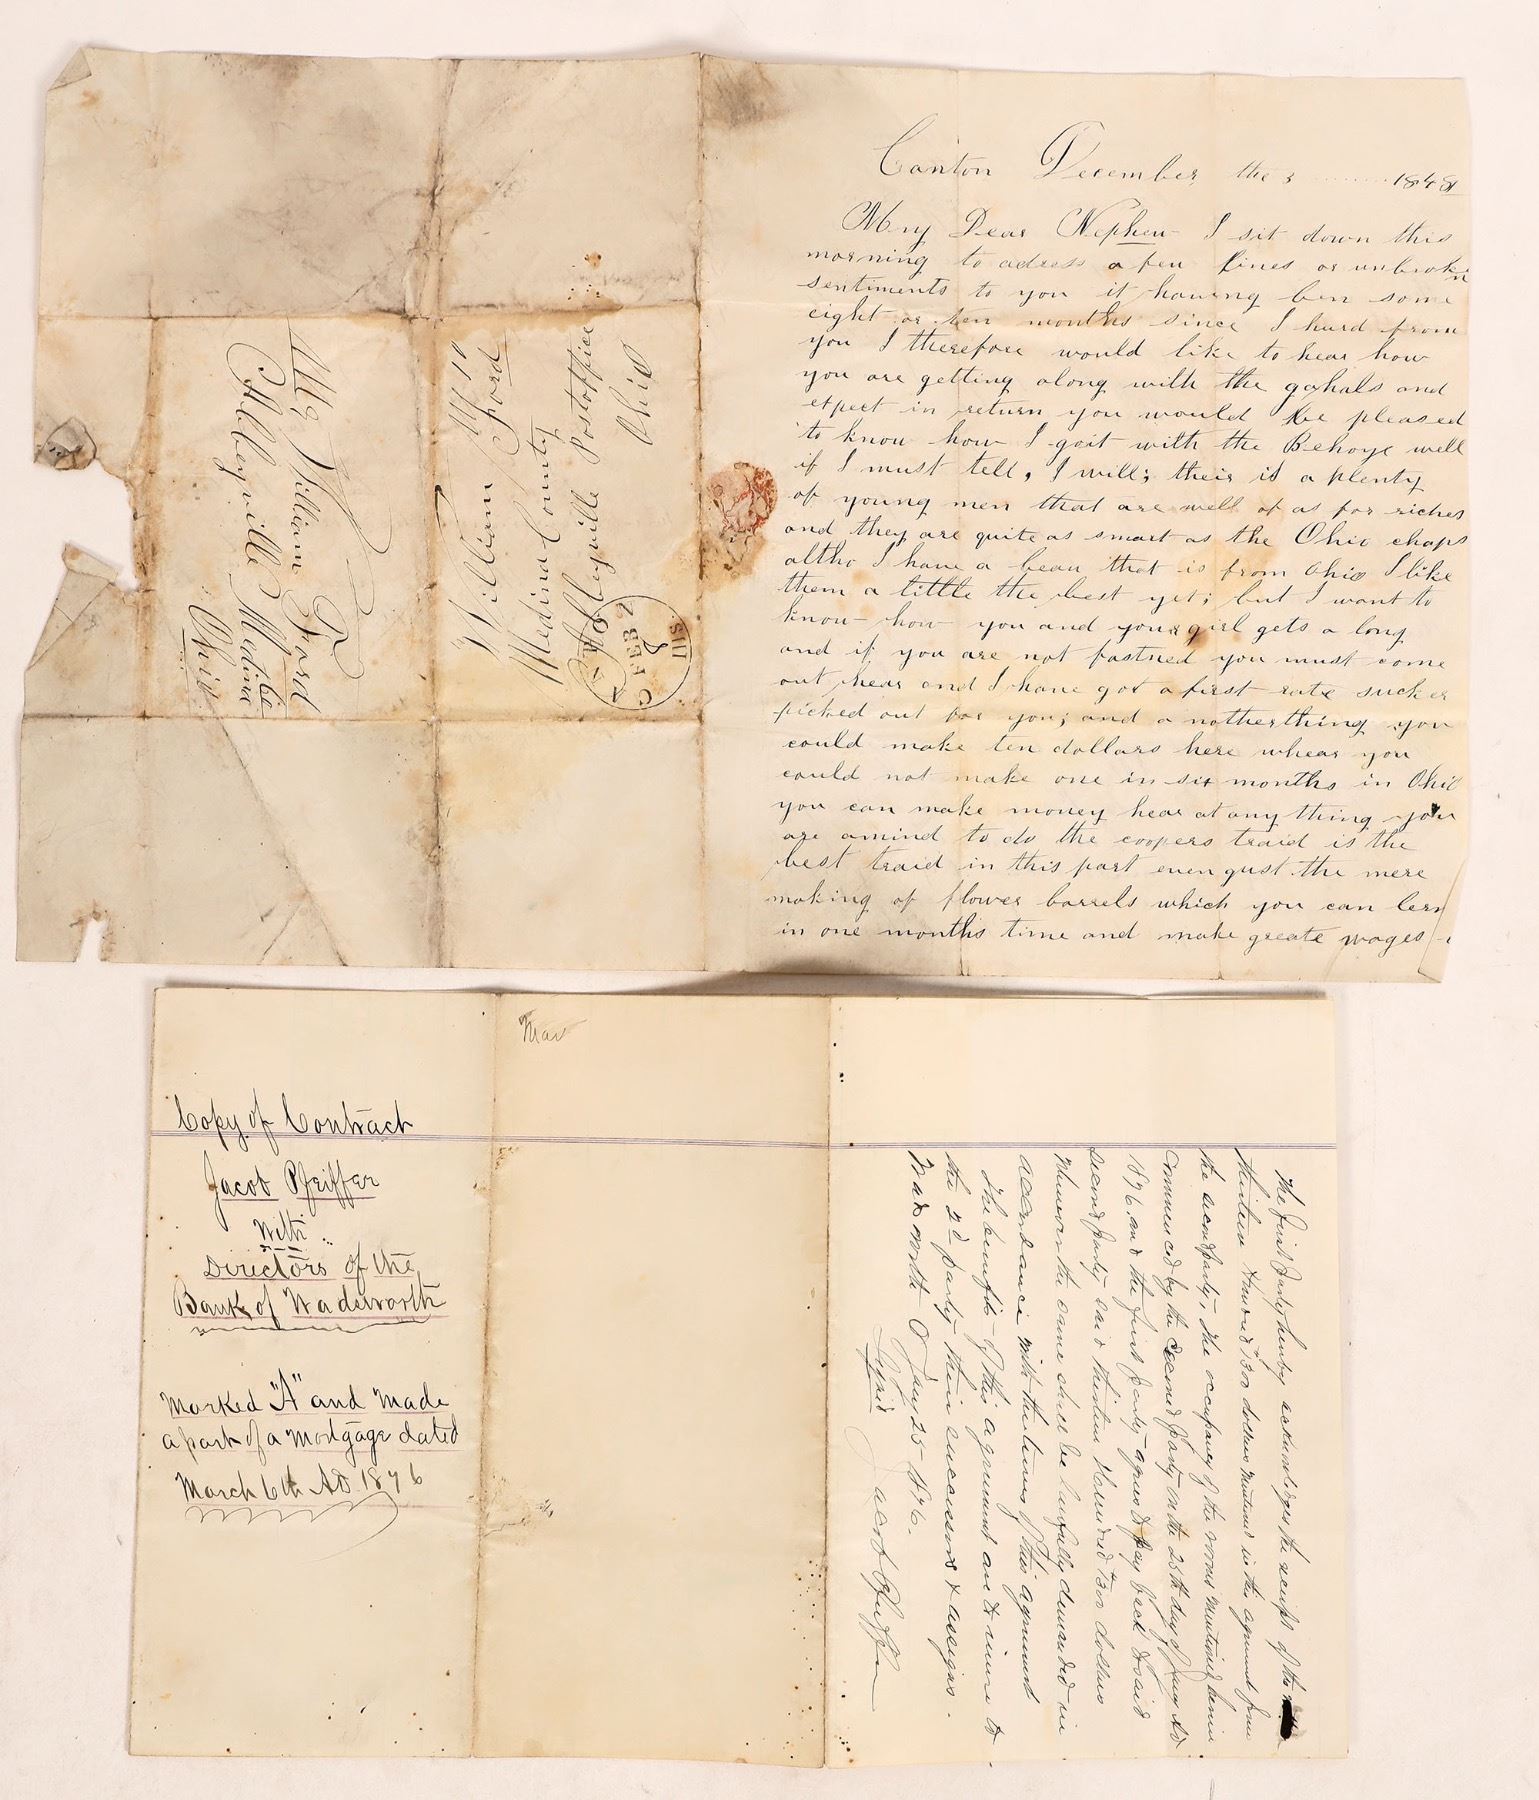 Canton December the 3 1848
My Dear Nephew I sit down this
morning to adress a few lines or unbroken
sentiments to you it having ben some
eight or ten months since I hurd from
you I therefore would like to hear how
you are getting along with the gahals and
expect in return you would be pleased
to know how I goit with the Behoys well
if I must tell, I will; their is a plenty
of young men that are well of as for riches
and they are quite as smart as the Ohio chaps
altho I have a beau that is from Ohio I like
them a little the best yet; but I want to
know how you and your girl gets a long
and if you are not fastned you must come
out hear and I have got a first rate sucker
picked out for you; and a notherthing you
could make ten dollars here whear you
could not make one in six months in Ohio
you can make money hear at any thing you
are amind to do the coopers traid is the
best traid in this part even gust the mere
making of flower barrels which you can lern
in one months time and make greate wages
William Ford
Medina County
Postoffice
Ohio
CANTON
FEB 2
ILLS
10
Mr William Ford
Abbeyville Medina Co
Ohio
Copy of Contract
Jacob Pfeiffer
With
Directors of the
Bank of Wadsworth
Marked "A" and Made
a part of a Mortgage dated
March 6th AD. 1876
Mar
The first party hereby acknowledges the receipt of the
thirteen Hundred 1300 dollars mentioned in this agreement from
the second party, the occupancy of the rooms mentioned herein
commenced by the second party on the 25th day of Jany AD
1876. and the first party agrees to pay back to said
second party said thirteen Hundred 1300 dollars
Whenever the same shall be lawfully demanded in
accordance with the terms of this agreement
The benefits of this agreement are to inure to
the 2d party their successors & assigns.
Wadsworth O Jany 25 1876.
Signed Jacob Pfeiffer